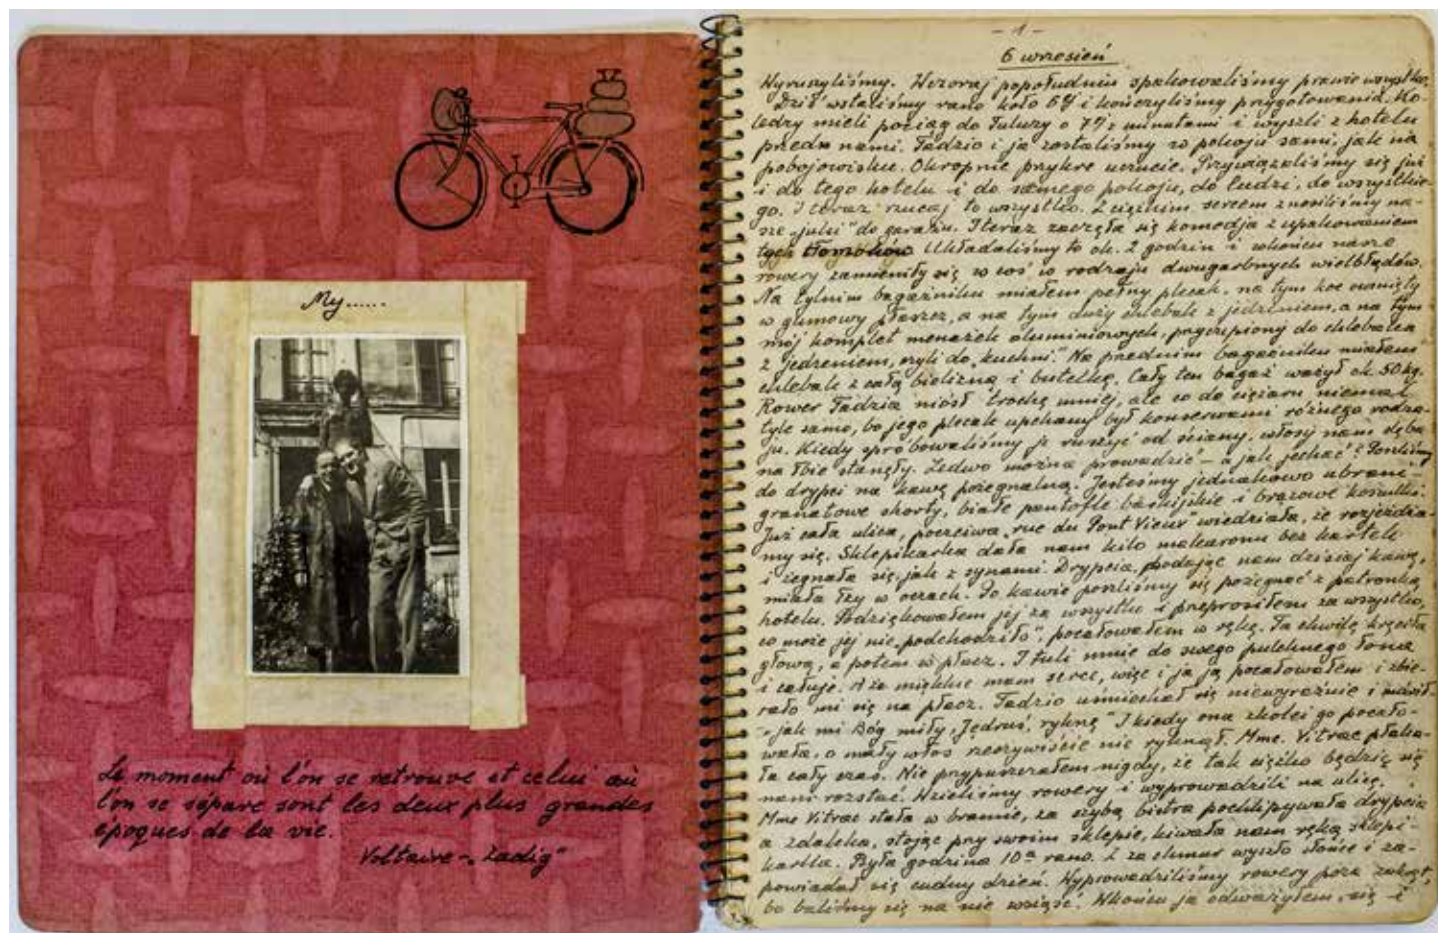 My......
Le moment où l'on se retrouve et celui où
l'on se sépare sont les deux plus grandes
époques de la vie.
Voltaire - „Zadig"
- 1 -
6 wrzesień
Wyruszyliśmy. Wczoraj popołudniu spakowaliśmy prawie wszystko.
Dziś wstaliśmy rano koło 6ej i kończyliśmy przygotowania. Ko-
ledzy mieli pociąg do Tuluzy o 7ej z minutami i wyszli z hotelu
przed nami. Tadzio i ja zostaliśmy w pokoju sami, jak na
pobojowisku. Okropnie przykre uczucie. Przywiązaliśmy się już
i do tego hotelu i do samego pokoju, do ludzi, do wszystkie-
go. I teraz rzucaj to wszystko. Z ciężkim sercem znosiliśmy na-
sze „julki" do garażu. I teraz zaczęła się komedja z upakowaniem
tych tłomoków. Układaliśmy to ok. 2 godzin i wkońcu nasze
rowery zamieniły się w coś w rodzaju dwugarbnych wielbłądów.
Na tylnim bagażniku miałem pełny plecak, na tym koc owinięty
w gumowy płaszcz, a na tym duży chlebak z jedzeniem, a na tym
mój komplet menażek aluminiowych, przyczepiony do chlebaka
z jedzeniem, czyli do „kuchni." Na przednim bagażniku miałem
chlebak z całą bielizną i butelkę. Cały ten bagaż ważył ok. 50 kg.
Rower Tadzia niósł trochę mniej, ale co do ciężaru niemal
tyle samo, bo jego plecak upchany był konserwami różnego rodza-
ju. Kiedy spróbowaliśmy je ruszyć od ściany, włosy nam dęba
na łbie stanęły. Ledwo można prowadzić - a jak jechać? Poszliśmy
do drypci na kawę pożegnalną. Jesteśmy jednakowo ubrani -
granatowe shorty, białe pantofle baskijskie i brązowe koszulki.
Już cała ulica, poczciwa „rue du Pont Vieux" wiedziała, że rozjeżdża-
my się. Sklepikarka dała nam kilo makaronu bez kartek
i żegnała się, jak z synami. Drypcia, podając nam dzisiaj kawę,
miała łzy w oczach. Po kawie poszliśmy się pożegnać z patronką
hotelu. Podziękowałem jej za wszystko i przeprosiłem za wszystko,
co może jej nie „podchodziło", pocałowałem w rękę. Ta chwilę kręciła
głową, a potem w płacz. I tuli mnie do swego pulchnego łona
i całuje. A że miękkie mam serce, więc i ja ją pocałowałem i zbie-
rało mi się na płacz. Tadzio uśmiechał się niewyraźnie i mówił
- „jak mi Bóg miły, Jędruś, ryknę" I kiedy ona zkolei go pocało-
wała, o mały włos rzeczywiście nie ryknął. Mme. Vitrac płaka-
ła cały czas. Nie przypuszczałem nigdy, że tak ciężko będzie się
nam rozstać. Wzieliśmy rowery i wyprowadzili na ulicę.
Mme Vitrac stała w bramie, za szybą bistra pochlipywała drypcia
a zdaleka, stojąc przy swoim sklepie, kiwała nam ręką sklepi-
karka. Była godzina 10a rano. Z za chmur wyszło słońce i za-
powiadał się cudny dzień. Wyprowadziliśmy rowery poza zakręt,
bo baliśmy się na nie wsiąść. Wkońcu ja odważyłem się i